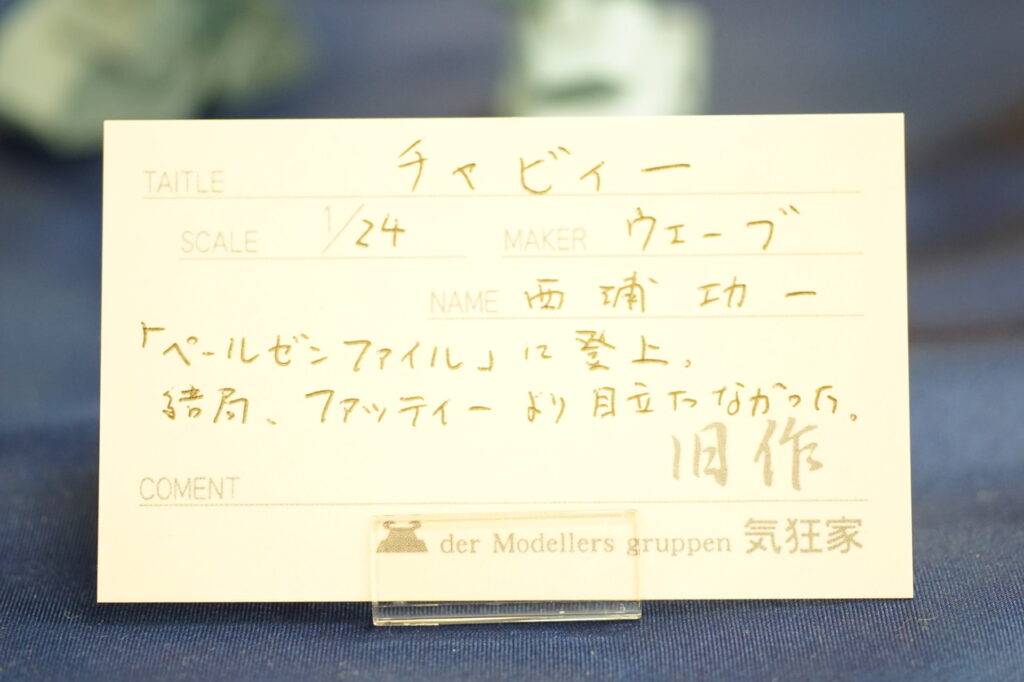 TAITLE チャビィー
SCALE 1/24 MAKER ウェーブ
NAME 西浦功一
「ペールゼンファイル」に登上。
結局、ファッティーより目立たなかった。
旧作
COMENT
der Modellers gruppen 気狂家